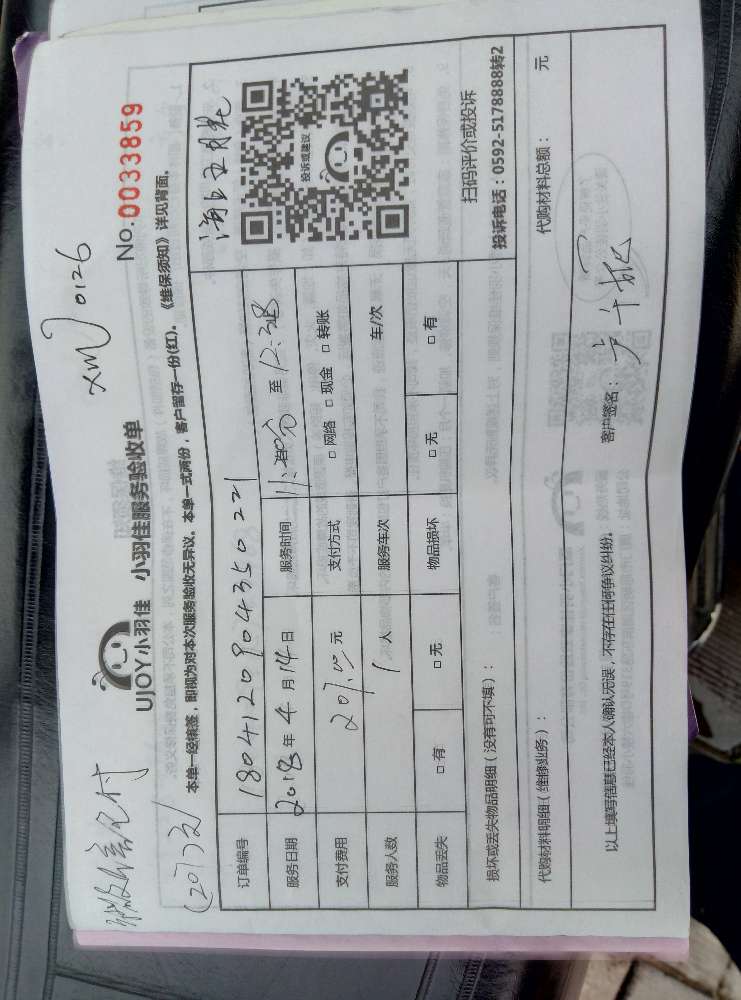 微信已付
(207元)
XMJ0126
UJOY小羽佳 小羽佳服务验收单
No.0033859
本单一经核签，即视为对本次服务验收无异议。本单一式两份，客户留存一份(红)。《维保须知》详见背面。
订单编号 1804120904350221
服务日期 2018年4月14日 服务时间 至12:38
支付费用 207元 支付方式 □网络 □现金 □转账
服务人数 1人 服务车次 车/次
物品丢失 □有 □无 物品损坏 □无 □有
投诉或建议
扫码评价或投诉
投诉电话：0592-5178888转2
损坏或丢失物品明细（没有可不填）：
代购材料明细（维修业务）： 代购材料总额： 元
以上填写信息已经本人确认无误，不存在任何争议纠纷。 客户签名：